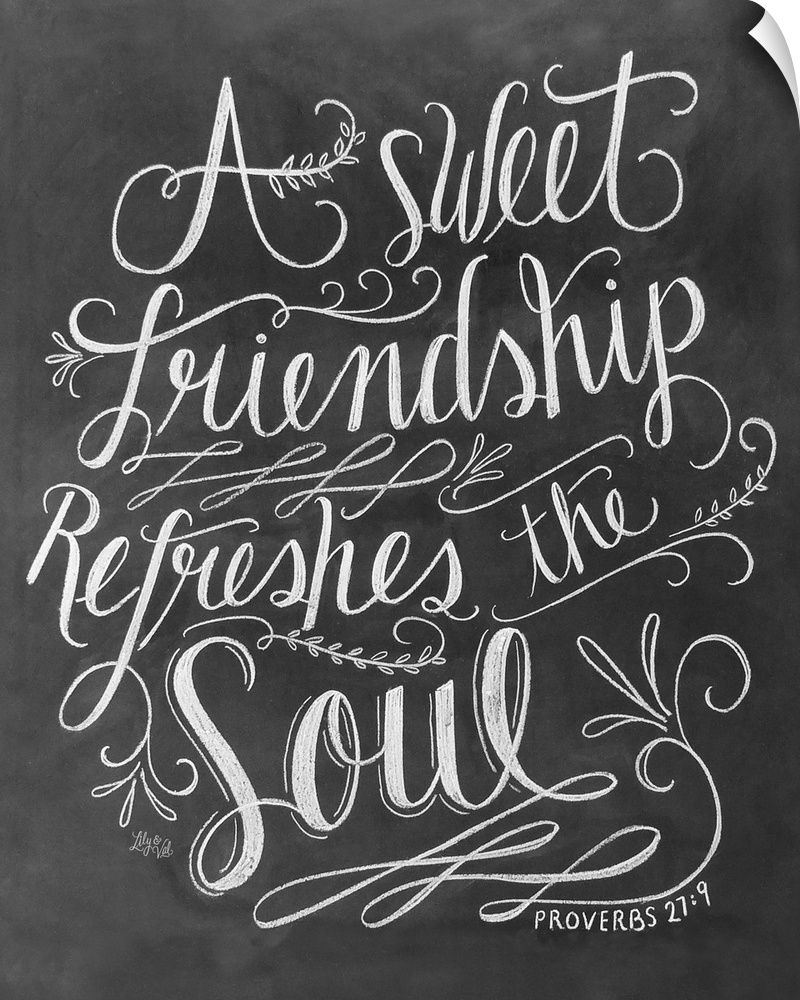 A sweet
friendship
Refreshes the
Soul
Lily &
Val
PROVERBS 27:9